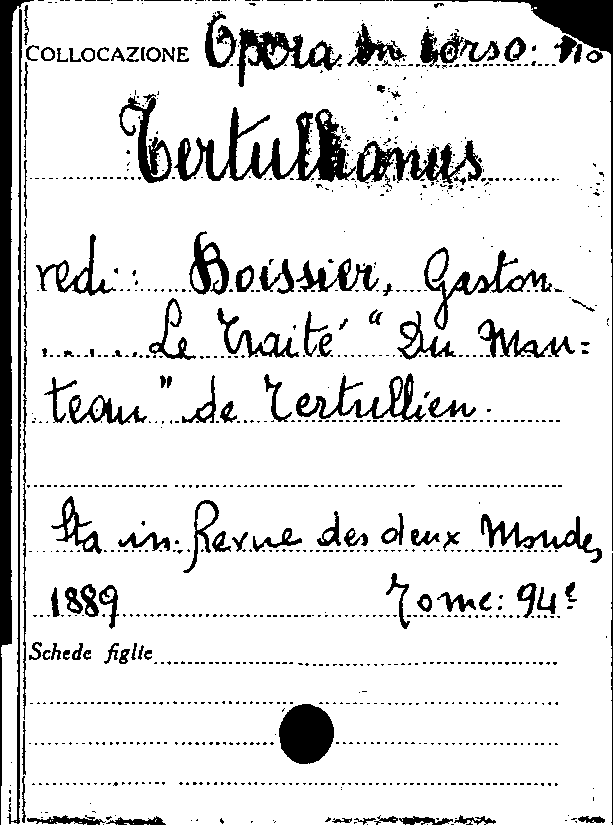 COLLOCAZIONE Opera in corso: no
Tertullianus
vedi: Boissier, Gaston
..... Le Traité "Du Man=
teau" de Tertullien.
Sta in Revue des deux Mondes,
1889 Tome: 94e
Schede figlie